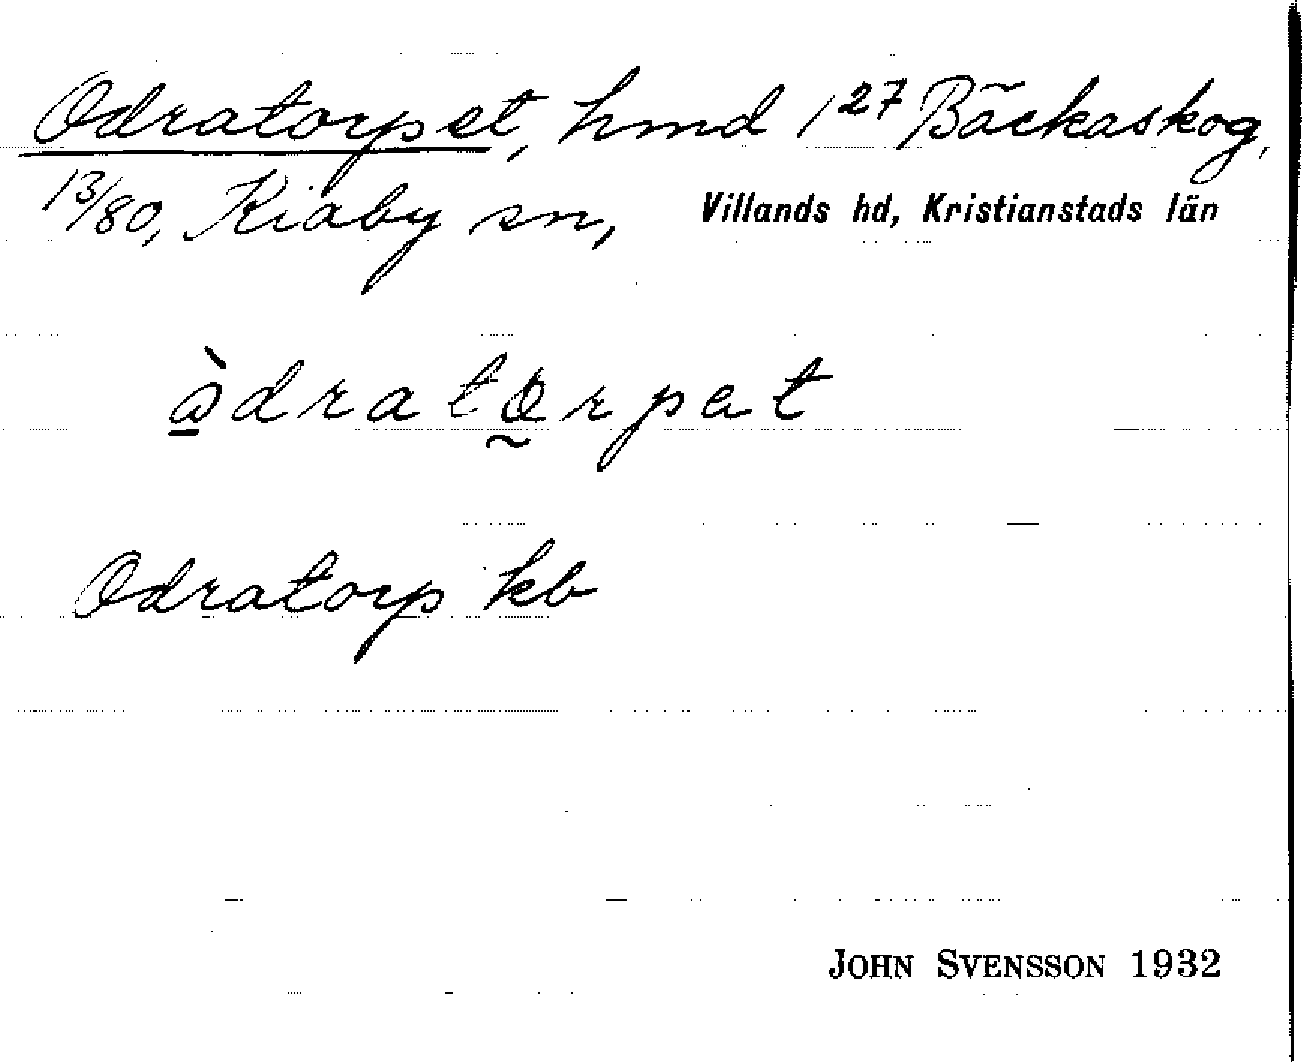 Odratorpet, hmd 1²⁷ Bäckaskog,
13/80, Kiaby sn, Villands hd, Kristianstads län
òdratorpet
Odratorp kb
JOHN SVENSSON 1932